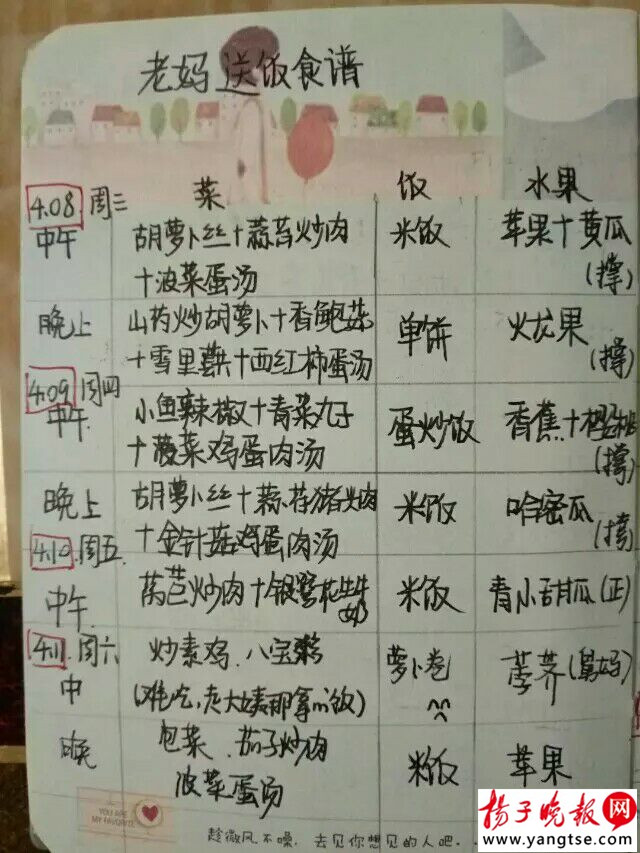 老妈送饭食谱
菜 饭 水果
4.08 周三
中午 胡萝卜丝+蒜苔炒肉 米饭 苹果+黄瓜
+波菜蛋汤 (撑)
晚上 山药炒胡萝卜+香鲍菇 单饼 火龙果
+雪里蕻+西红柿蛋汤 (撑)
4.09 周四
中午 小鱼辣椒+青菜丸子 蛋炒饭 香蕉+樱桃
+菠菜鸡蛋肉汤 (撑)
晚上 胡萝卜丝+蒜苔猪头肉 米饭 哈密瓜
+金针菇鸡蛋肉汤 (撑)
4.10 周五
中午 莴苣炒肉+银鹭花生牛奶 米饭 青小甜瓜(正)
4.11 周六 炒素鸡、八宝粥 萝卜卷 荸荠(舅妈)
中 (难吃,老大姨那拿的饭)
晚 包菜、茄子炒肉 米饭 苹果
波菜蛋汤
YOU ARE
MY FAVORITE
趁微风不噪,去见你想见的人吧..
扬子晚报网
www.yangtse.com